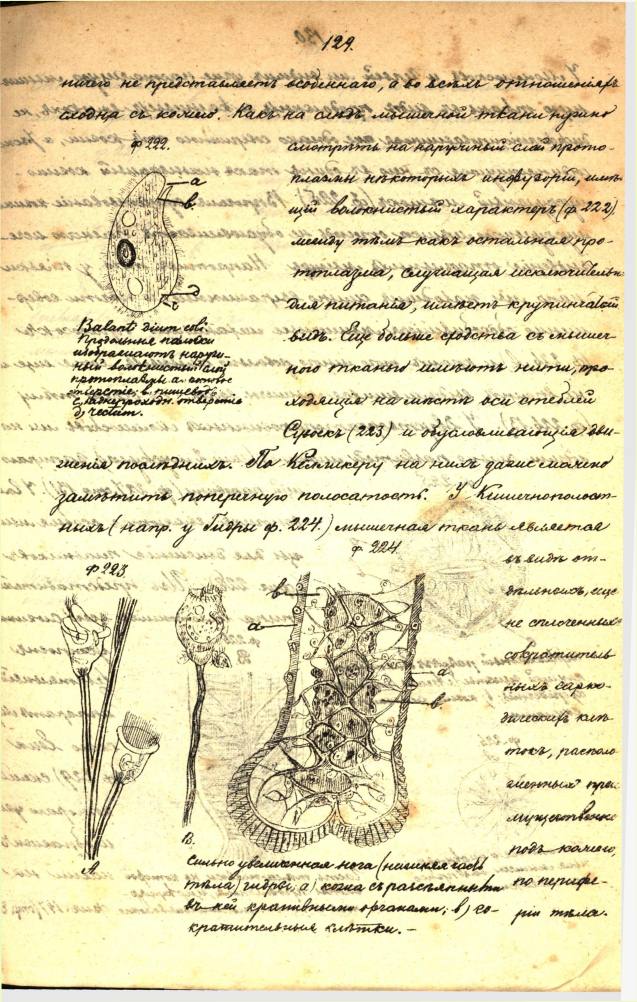 129.
ничего не представляетъ особеннаго, а во всѣхъ отношенiяхъ
сходна съ кожею. Какъ на слѣдъ мышечной ткани нужно
ф 222.
смотрѣть на наружный слой прото-
плазмы нѣкоторыхъ инфузорiй, имѣю-
щiй волокнистый характеръ (ф 222)
между тѣмъ какъ остальная про-
топлазма, служащая исключительно
для питанiя, имѣетъ крупинчатый
видъ. Еще больше сходства съ мышеч-
ного тканью имѣютъ нити, про-
ходящiя на мѣстѣ оси стеблей
Сувоекъ (223) и обусловливающiя дви-
женiя послѣднихъ. По Келликеру на нихъ даже можно
замѣтить поперечную полосатость. У Кишечнополост-
ныхъ (напр. у Гидры ф. 224.) мышечная ткань является
въ видѣ от-
дѣльныхъ, еще
не сплоченныхъ
сократитель
ныхъ сарко-
дическихъ клѣ
токъ, располо
женныхъ преи
мущественно
подъ кожею,
по перифе-
рiи тѣла.
а
в.
с
д
Balantidium coli.
Продольныя полоски
изображаютъ наруж-
ный волокнистый слой
протоплазмы а. ротовое
отверстiе; в. пищевод
с. заднепроходн. отверстiе
д. частич.
ф 223.
А
В.
ф 224.
в
а
а
в.
Сильно увеличенная нога (нижняя часть
тѣла) гидры; а) кожа съ разсѣянными
въ ней крапивными органами; в) со-
кратительныя клѣтки. –